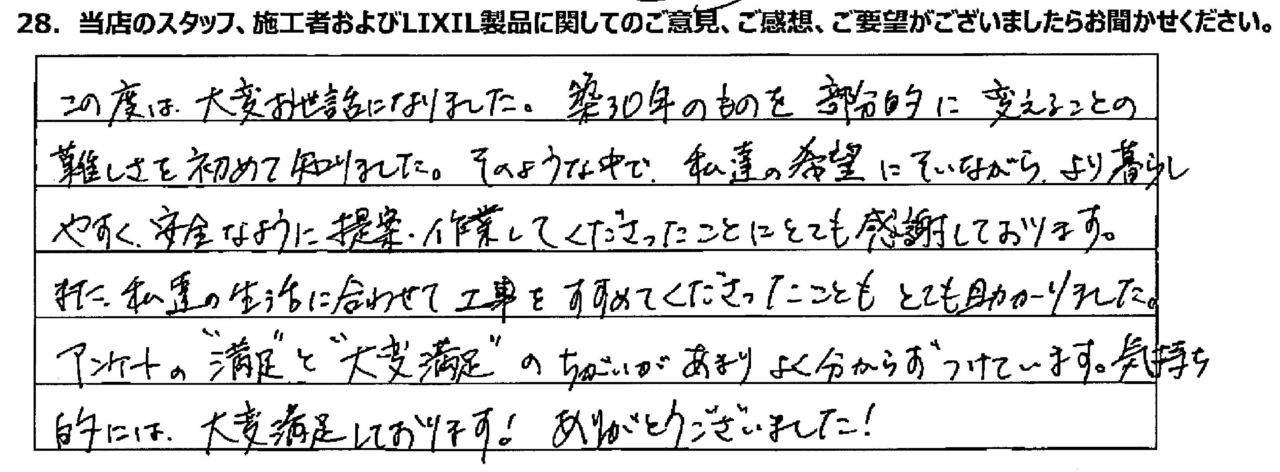 28. 当店のスタッフ、施工者およびLIXIL製品に関してのご意見、ご感想、ご要望がございましたらお聞かせください。
この度は、大変お世話になりました。築30年のものを部分的に変えることの
難しさを初めて知りました。そのような中で、私達の希望にそいながら、より暮らし
やすく、安全なように提案・作業してくださったことにとても感謝しております。
また、私達の生活に合わせて工事をすすめてくださったこともとても助かりました。
アンケートの"満足"と"大変満足"のちがいがあまりよく分からずつけています。気持ち
的には、大変満足しております! ありがとうございました!